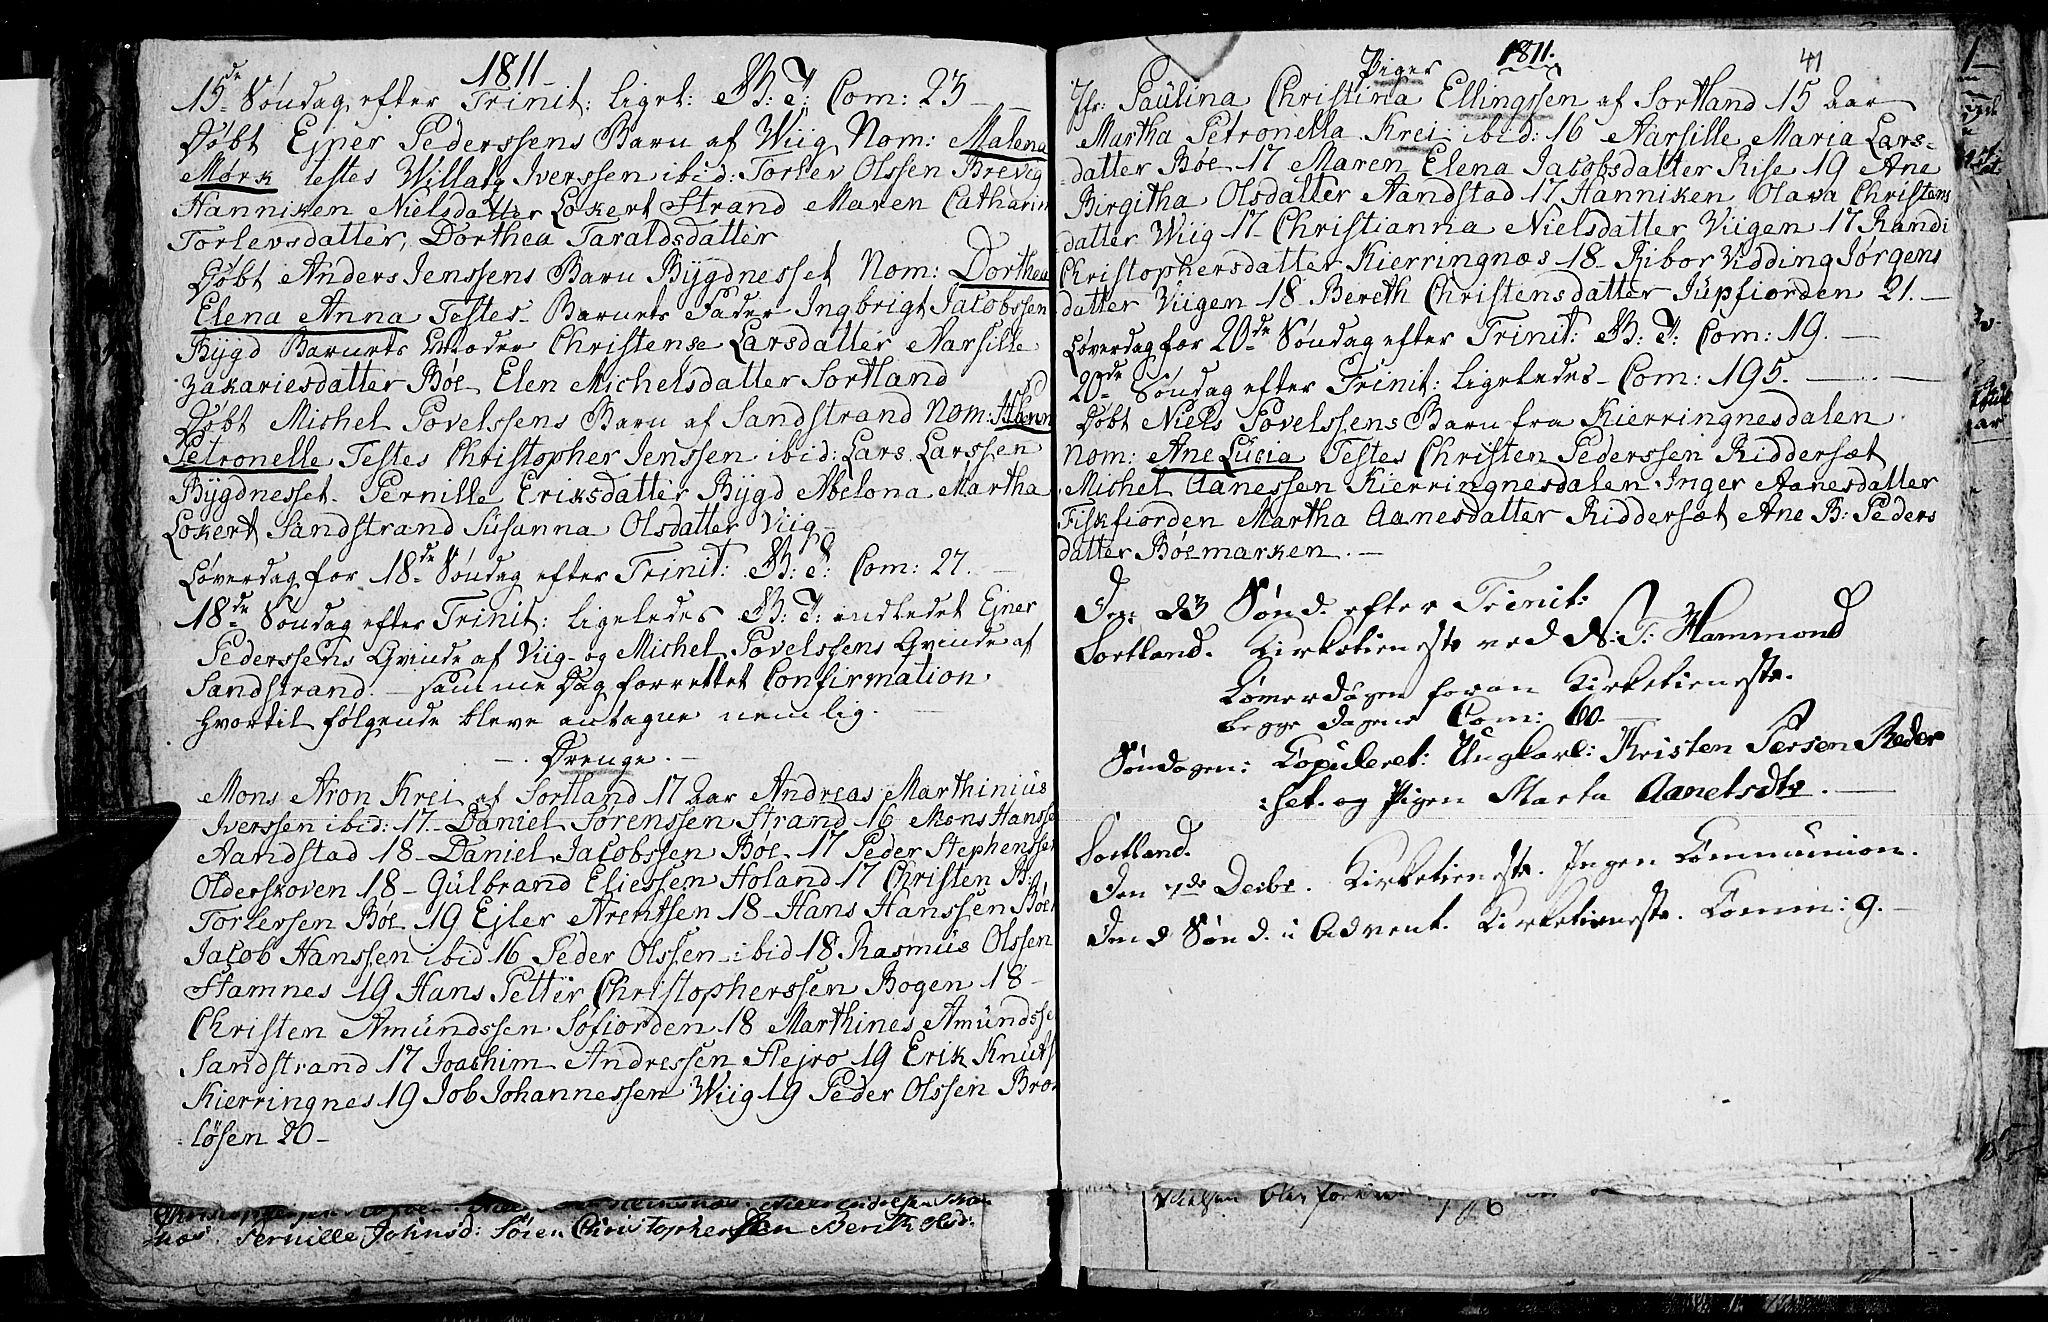 1811
15de Søndag efter Trinit: liget: B: T: Com: 23 —
Døbt Ejner Pederssens Barn af Wiig Nom: Malena
Mørk testes Willatz Iverssen ibid: Torlev Olssen Brevig
Hanniken Nielsdatter Lokert Strand Maren Catharin
Torlevsdatter, Dorthea Taraldsdatter
Døbt Anders Jenssens Barn Bÿgdnesset Nom: Dorthea
Elena Anna Testes Barnets Fader Ingbrigt Jacobssen
Bÿgd Barnets Moder Christense Larsdatter Narsille
Zakariesdatter Bøe Elen Michelsdatter Sortland
Døbt Michel Povelssens Barn af Sandstrand Nom: Hann
Petronelle Testes Christopher Jenssen ibid: Lars Larssen
Bÿgdnesset. Pernille Eriksdatter Bÿgd Abelona Martha
Lokert Sandstrand Susanna Olsdatter Viig —
Løverdag for 18de Søndag efter Trinit: B: T: Com: 27. —
18de Søndag efter Trinit: ligeledes B: T: indledet Ejner
Pederssens Qvinde af Viig - og Michel Povelssens Qvinde af
Sandstrand. — samme Dag forrettet Confirmation
hvortil følgende bleve antagne nemlig. —
—. Drenge. —
Mons Aron Krei af Sortland 17 Aar Andreas Marthinius
Iverssen ibid: 17 — Daniel Sørenssen Strand 16 Mons Hansse
Aandstad 18 — Daniel Jacobssen Bøe 17 Peder Stephenssen
Olderskoven 18 — Gülbrand Eliessen Holand 17 Christen B:
Torlerssen Bøe 19 Ejler Arentsen 18 — Hans Hanssen Bøe
Jacob Hanssen ibid 16 Peder Olssen ibid 18 Rasmus Olssen
Stamnes 19 Hans Petter Christopherssen Bogen 18 —
Christen Amündssen Søfiorden 18 Marthines Amündsse
Sandstrand 17 Joachim Andressen Slejro 19 Erik Knuts
Kierringnes 19 Job Johannessen Wiig 19 Peder Olssen Bron
løsen 20 —
Pernille Johnsd: Sören Christophersen Berith Olsd:
Piger 1811. 41
Jfr: Paulina Christina Ellingssen af Sortland 15 Aar
Martha Petronella Krei ibid: 16 Narsille Maria Lars-
datter Bøe 17 Maren Elena Jacobsdatter Rise 19 Ane
Birgitha Olsdatter Aandstad 17 Hanniken Olava Christens
datter Wiig 17 — Christianna Nielsdatter Viigen 17 Randi
Christophersdatter Kierringnæs 18 — Ribor Vidding Jørgens
datter Viigen 18 — Bereth Christensdatter Jüpfiorden 21. —
Løverdag for 20de Søndag efter Trinit: B: T: Com: 19. —
20de Søndag efter Trinit: ligeledes — Com: 195. —
Døbt Niels Povelssens Barn fra Kierringnesdalen
Nom: Ane Lucia Testes Christen Pederssen Riddersæt
Michel Aanessen Kierringnesdalen Inger Aanesdatter
Fiskfiorden Martha Aanesdatter Riddersæt Ane B: Peders
datter Bøemarken. —
Den 23 Sønd. efter Trinit:
Sortland. Kirketieneste ved N: T: Hammond
Lømerdagen foran Kirketieneste.
begge dagene Com: 60. —
Søndagen: Copuleret: Ungkarl: Kristen Persen Reder
:set. og Pigen Marta Aanetsdtr. —
Sortland.
Den 1de Decbr. Kirketieneste. Ingen Communion.
Den 2 Sønd. i Advent. Kirketieneste. Commun: 9. —